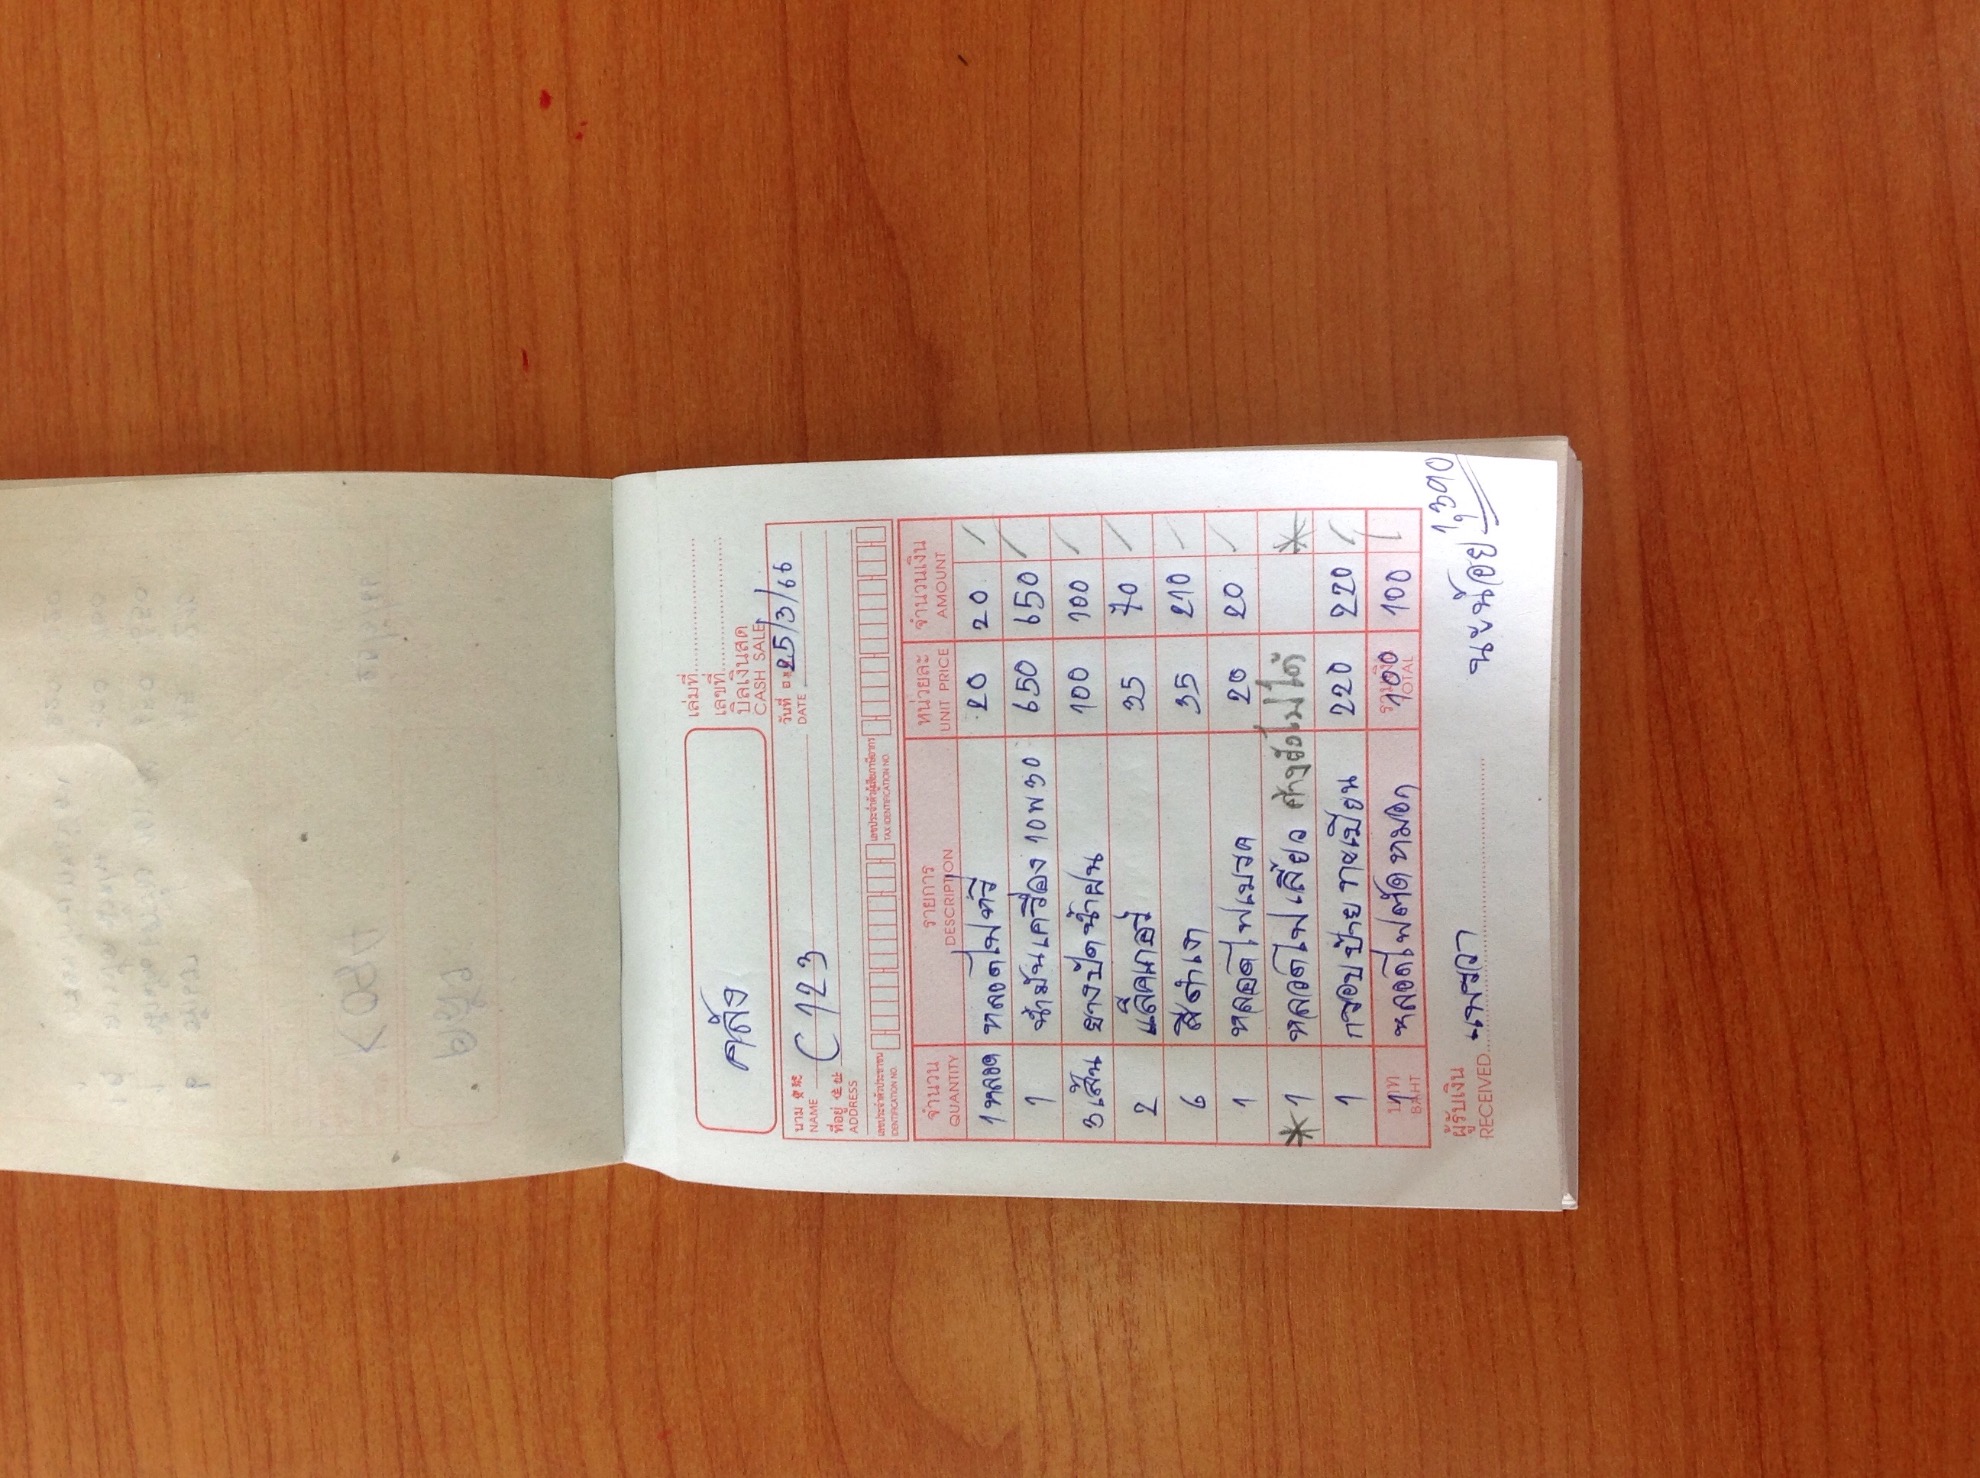 คลัง
เล่มที่
เลขที่
บิลเงินสด
CASH SALE
วันที่ 25/3/66
DATE
นาม C 123
NAME
ที่อยู่
ADDRESS
เลขประจำตัวประชาชน
IDENTIFICATION NO.
เลขประจำตัวผู้เสียภาษีอากร
TAX IDENTIFICATION NO.
จำนวน รายการ หน่วยละ จำนวนเงิน
QUANTITY DESCRIPTION UNIT PRICE AMOUNT
1 หลอด หลอดไฟหรี่ 20 20
1 น้ำมันเครื่อง 10W30 650 650
3 เส้น ยางปัดน้ำฝน 100 100
2 แล็คเกอร์ 35 70
6 สีดำเงา 35 210
1 หลอดไฟเบรค 20 20
* 1 หลอดไฟเลี้ยว *
1 กรอบป้ายทะเบียน 220 220
1 หลอดไฟตัดหมอก 100 100
บาท รวมเงิน
BAHT TOTAL
ผู้รับเงิน
RECEIVED
1,390